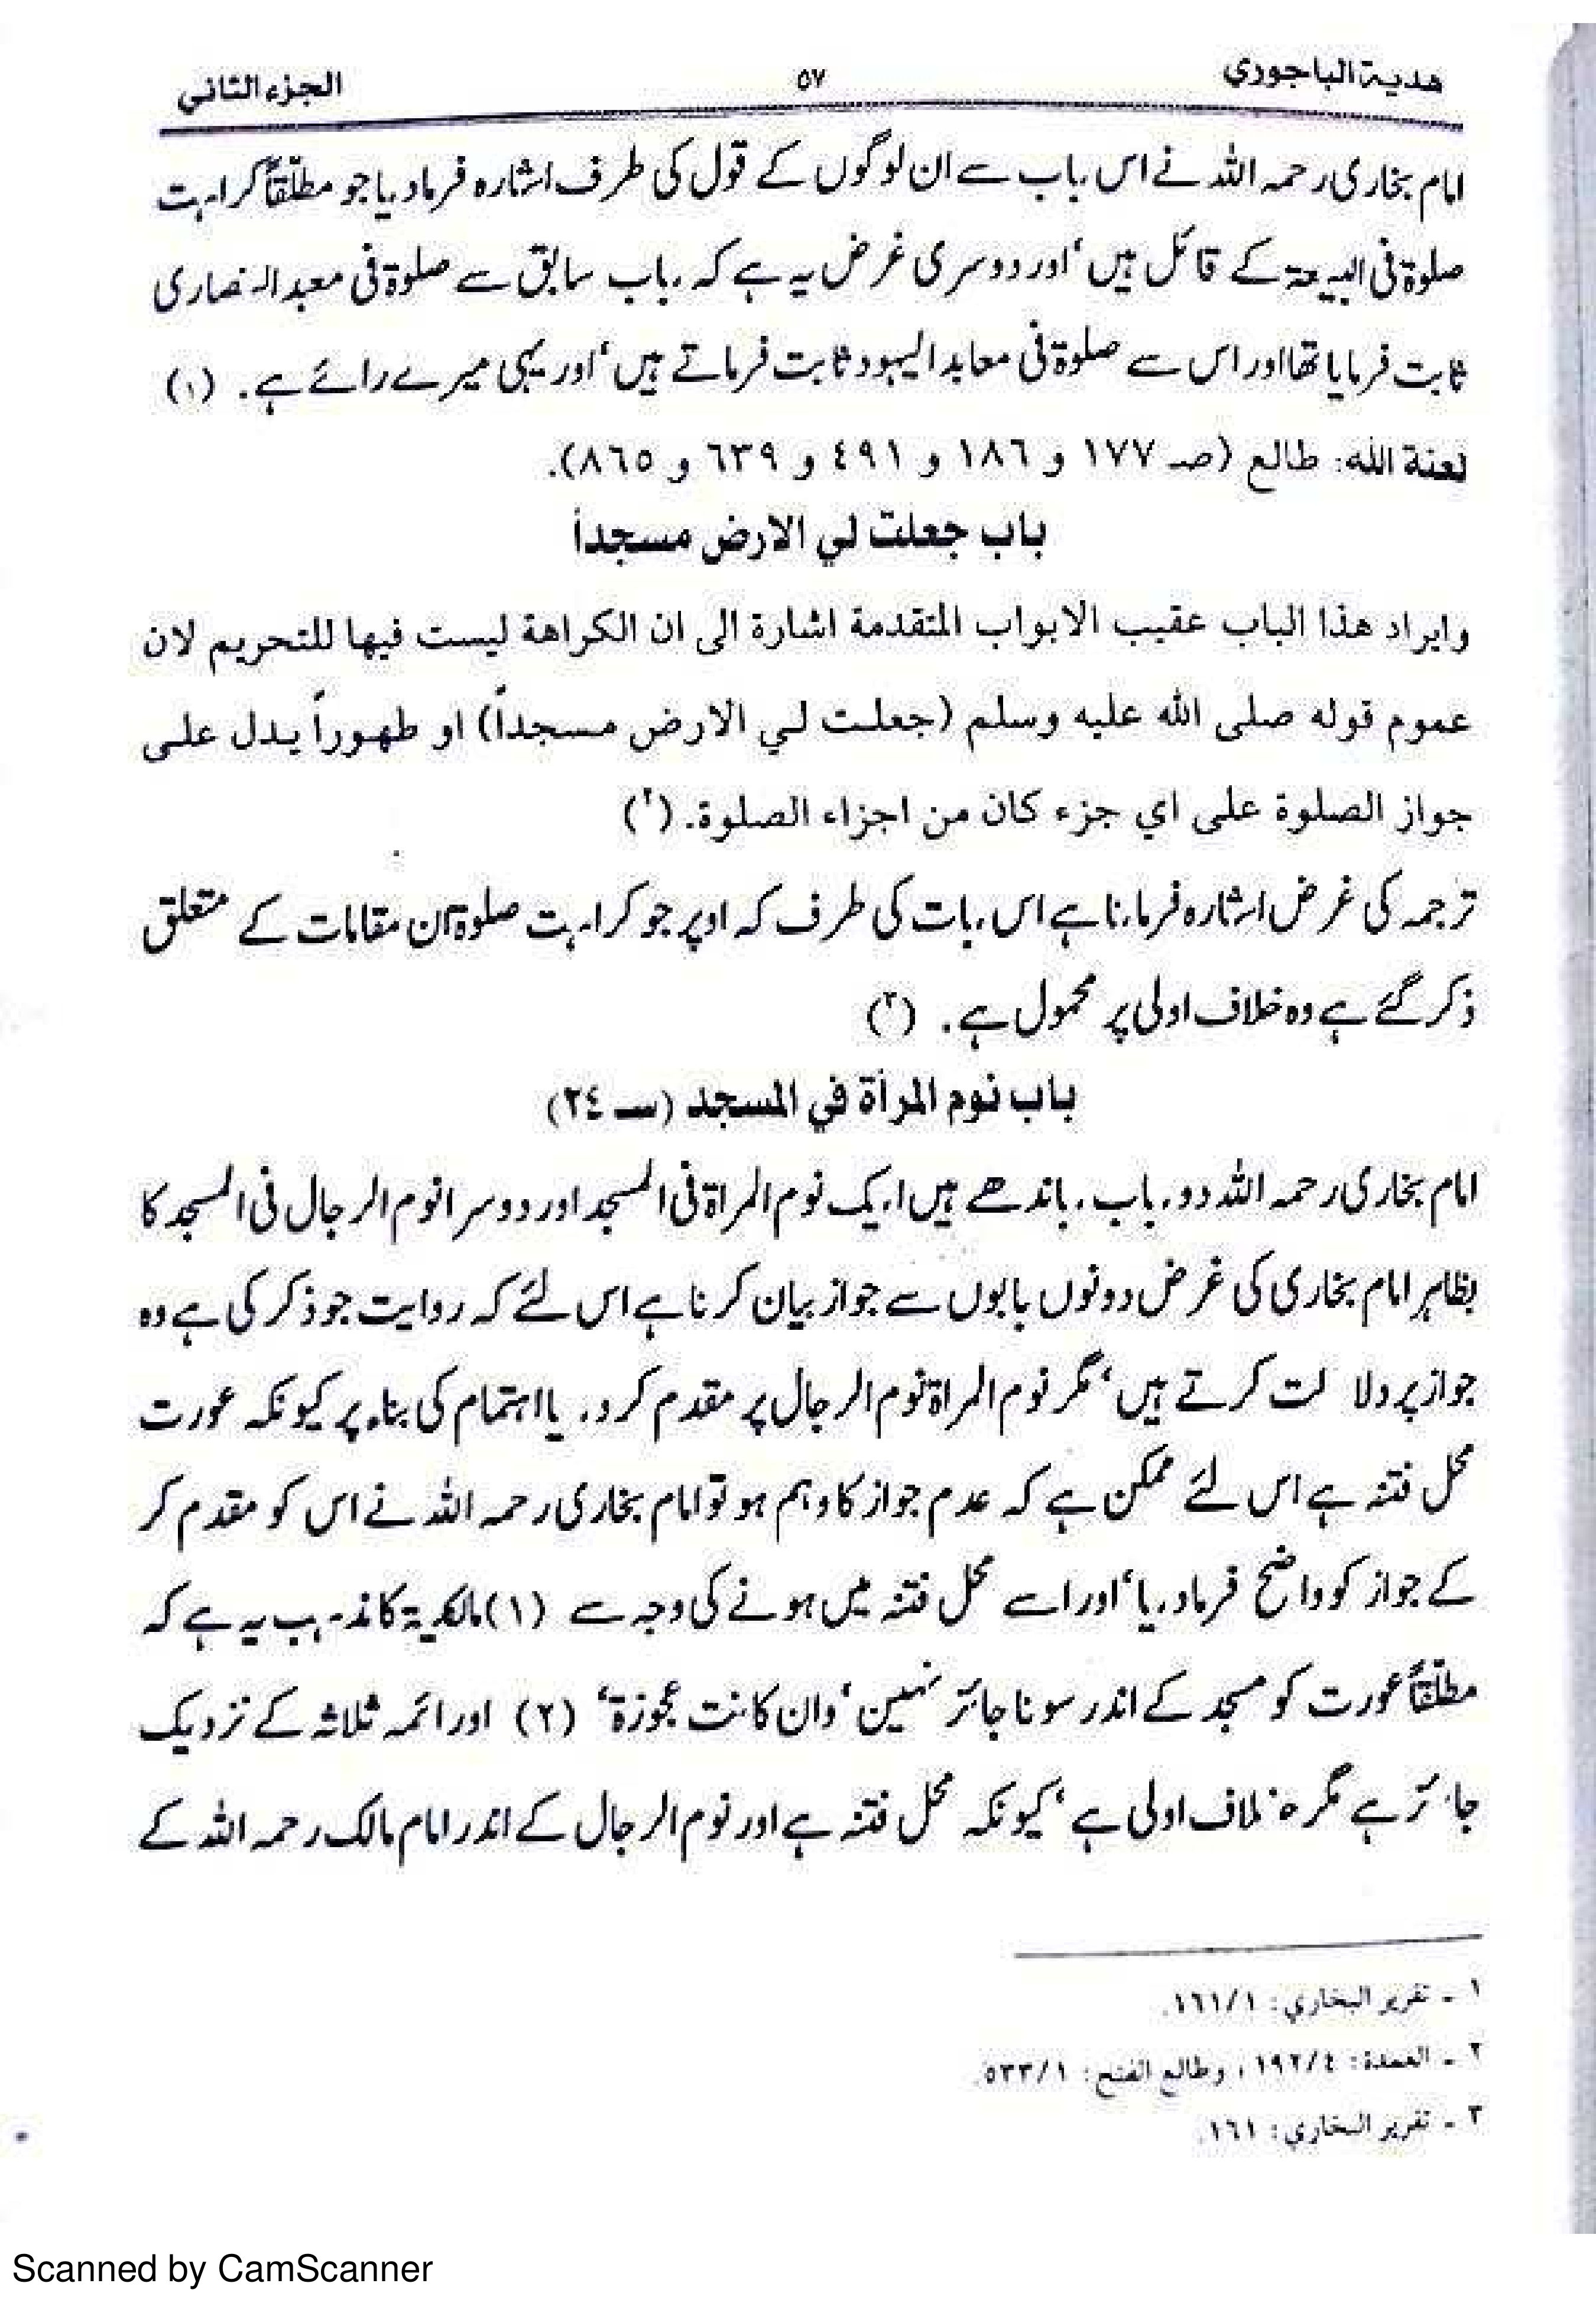 هدية الباجوري ٥٧ الجزء الثاني
امام بخاری رحمہ اللہ نے اس باب سے ان لوگوں کے قول کی طرف اشارہ فرمادیا جو مطلقاً کراہت
صلوۃ فی البیعۃ کے قائل ہیں‘ اور دوسری غرض یہ ہے کہ باب سابق سے صلوۃ فی معبد النصاری
ثابت فرمایا تھا اور اس سے صلوۃ فی معابد الیہود ثابت فرماتے ہیں‘ اور یہی میرے رائے ہے. (۱)
لعنة الله: طالع (صـ ١٧٧ و ١٨٦ و ٤٩١ و ٦٣٩ و ٨٦٥).
باب جعلت لي الارض مسجداً
وايراد هذا الباب عقيب الابواب المتقدمة اشارة الى ان الكراهة ليست فيها للتحريم لان
عموم قوله صلى الله عليه وسلم (جعلت لي الارض مسجداً) او طهوراً يدل على
جواز الصلوة على اي جزء كان من اجزاء الصلوة. (٢)
ترجمہ کی غرض اشارہ فرمانا ہے اس بات کی طرف کہ اوپر جو کراہت صلوۃ ان مقامات کے متعلق
ذکر گئے ہے وہ خلاف اولی پر محمول ہے. (۳)
باب نوم المرأة في المسجد (سـ ٢٤)
امام بخاری رحمہ اللہ دو باب باندھے ہیں ایک نوم المراۃ فی المسجد اور دوسرا نوم الرجال فی المسجد کا
بظاہر امام بخاری کی غرض دونوں بابوں سے جواز بیان کرنا ہے اس لئے کہ روایت جو ذکر کی ہے وہ
جواز پر دلا لت کرتے ہیں‘ مگر نوم المراۃ نوم الرجال پر مقدم کردیا اہتمام کی بناء پر کیونکہ عورت
محل فتنہ ہے اس لئے ممکن ہے کہ عدم جواز کا وہم ہو تو امام بخاری رحمہ اللہ نے اس کو مقدم کر
کے جواز کو واضح فرمادیا‘ اور اسے محل فتنہ میں ہونے کی وجہ سے (۱) مالکیۃ کا مذہب یہ ہے کہ
مطلقاً عورت کو مسجد کے اندر سونا جائز نہیں‘ وان کانت عجوزۃ‘ (۲) اور ائمہ ثلاثہ کے نزدیک
جائز ہے مگر خلاف اولی ہے‘ کیونکہ محل فتنہ ہے اور نوم الرجال کے اندر امام مالک رحمہ اللہ کے
١ ـ تقرير البخاري: ١٦١/١.
٢ ـ العمدة: ١٩٢/٤، وطالع الفتح: ٥٣٣/١.
٣ ـ تقرير البخاري: ١٦١.
Scanned by CamScanner